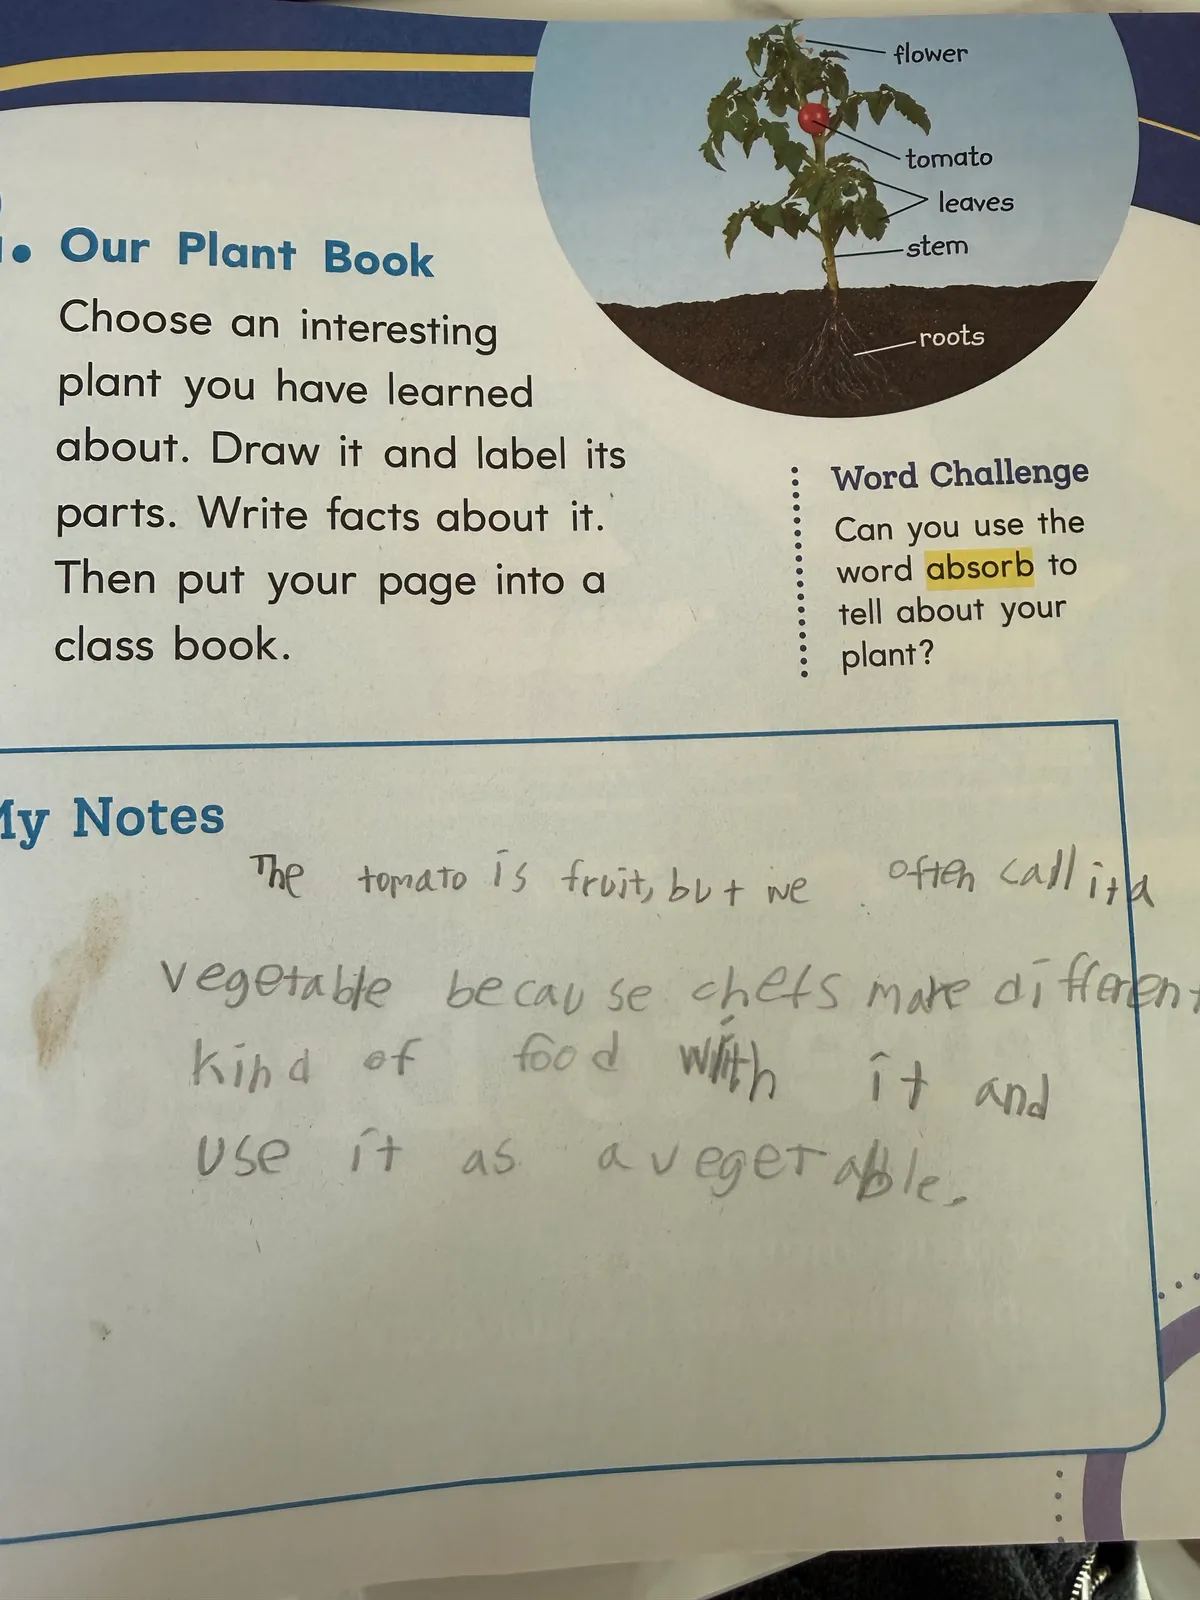 flower
tomato
leaves
stem
roots
. Our Plant Book
Choose an interesting
plant you have learned
about. Draw it and label its
parts. Write facts about it.
Then put your page into a
class book.
Word Challenge
Can you use the
word absorb to
tell about your
plant?
My Notes
The tomato is fruit, but we often call it a
vegetable because chefs make different
kind of food with it and
use it as a vegetable.